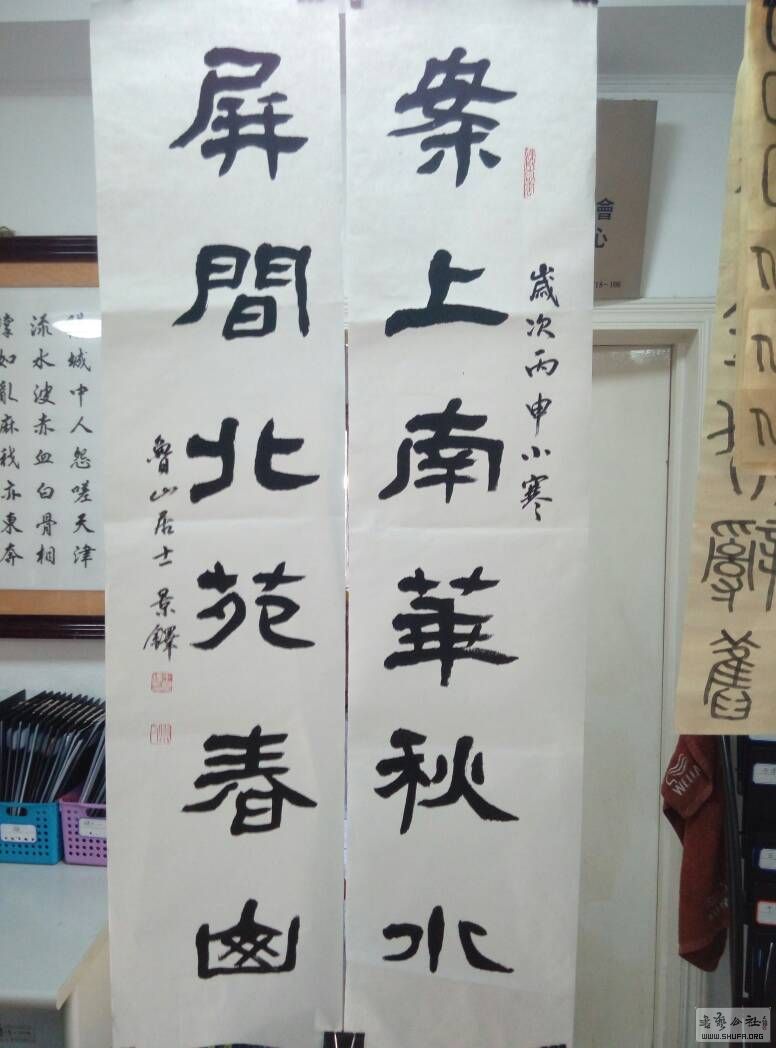 案上南華秋水
歲次丙申小寒
屏間北苑春山
魯山居士景鐸
城中人怨嗟天津
流水波赤血白骨相
撐如亂麻我亦東奔
辭舊
會心
書藝公社
WWW.SHUFA.ORG